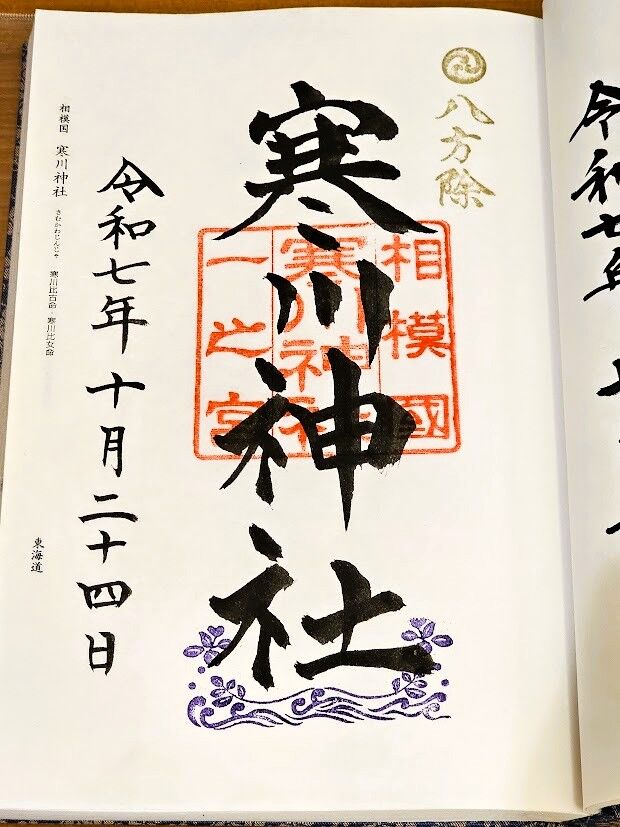 令和七年
八方除
寒川神社
相模國
寒川神社
一之宮
令和七年十月二十四日
相模国 寒川神社 さむかわじんじゃ 寒川比古命・寒川比女命
東海道